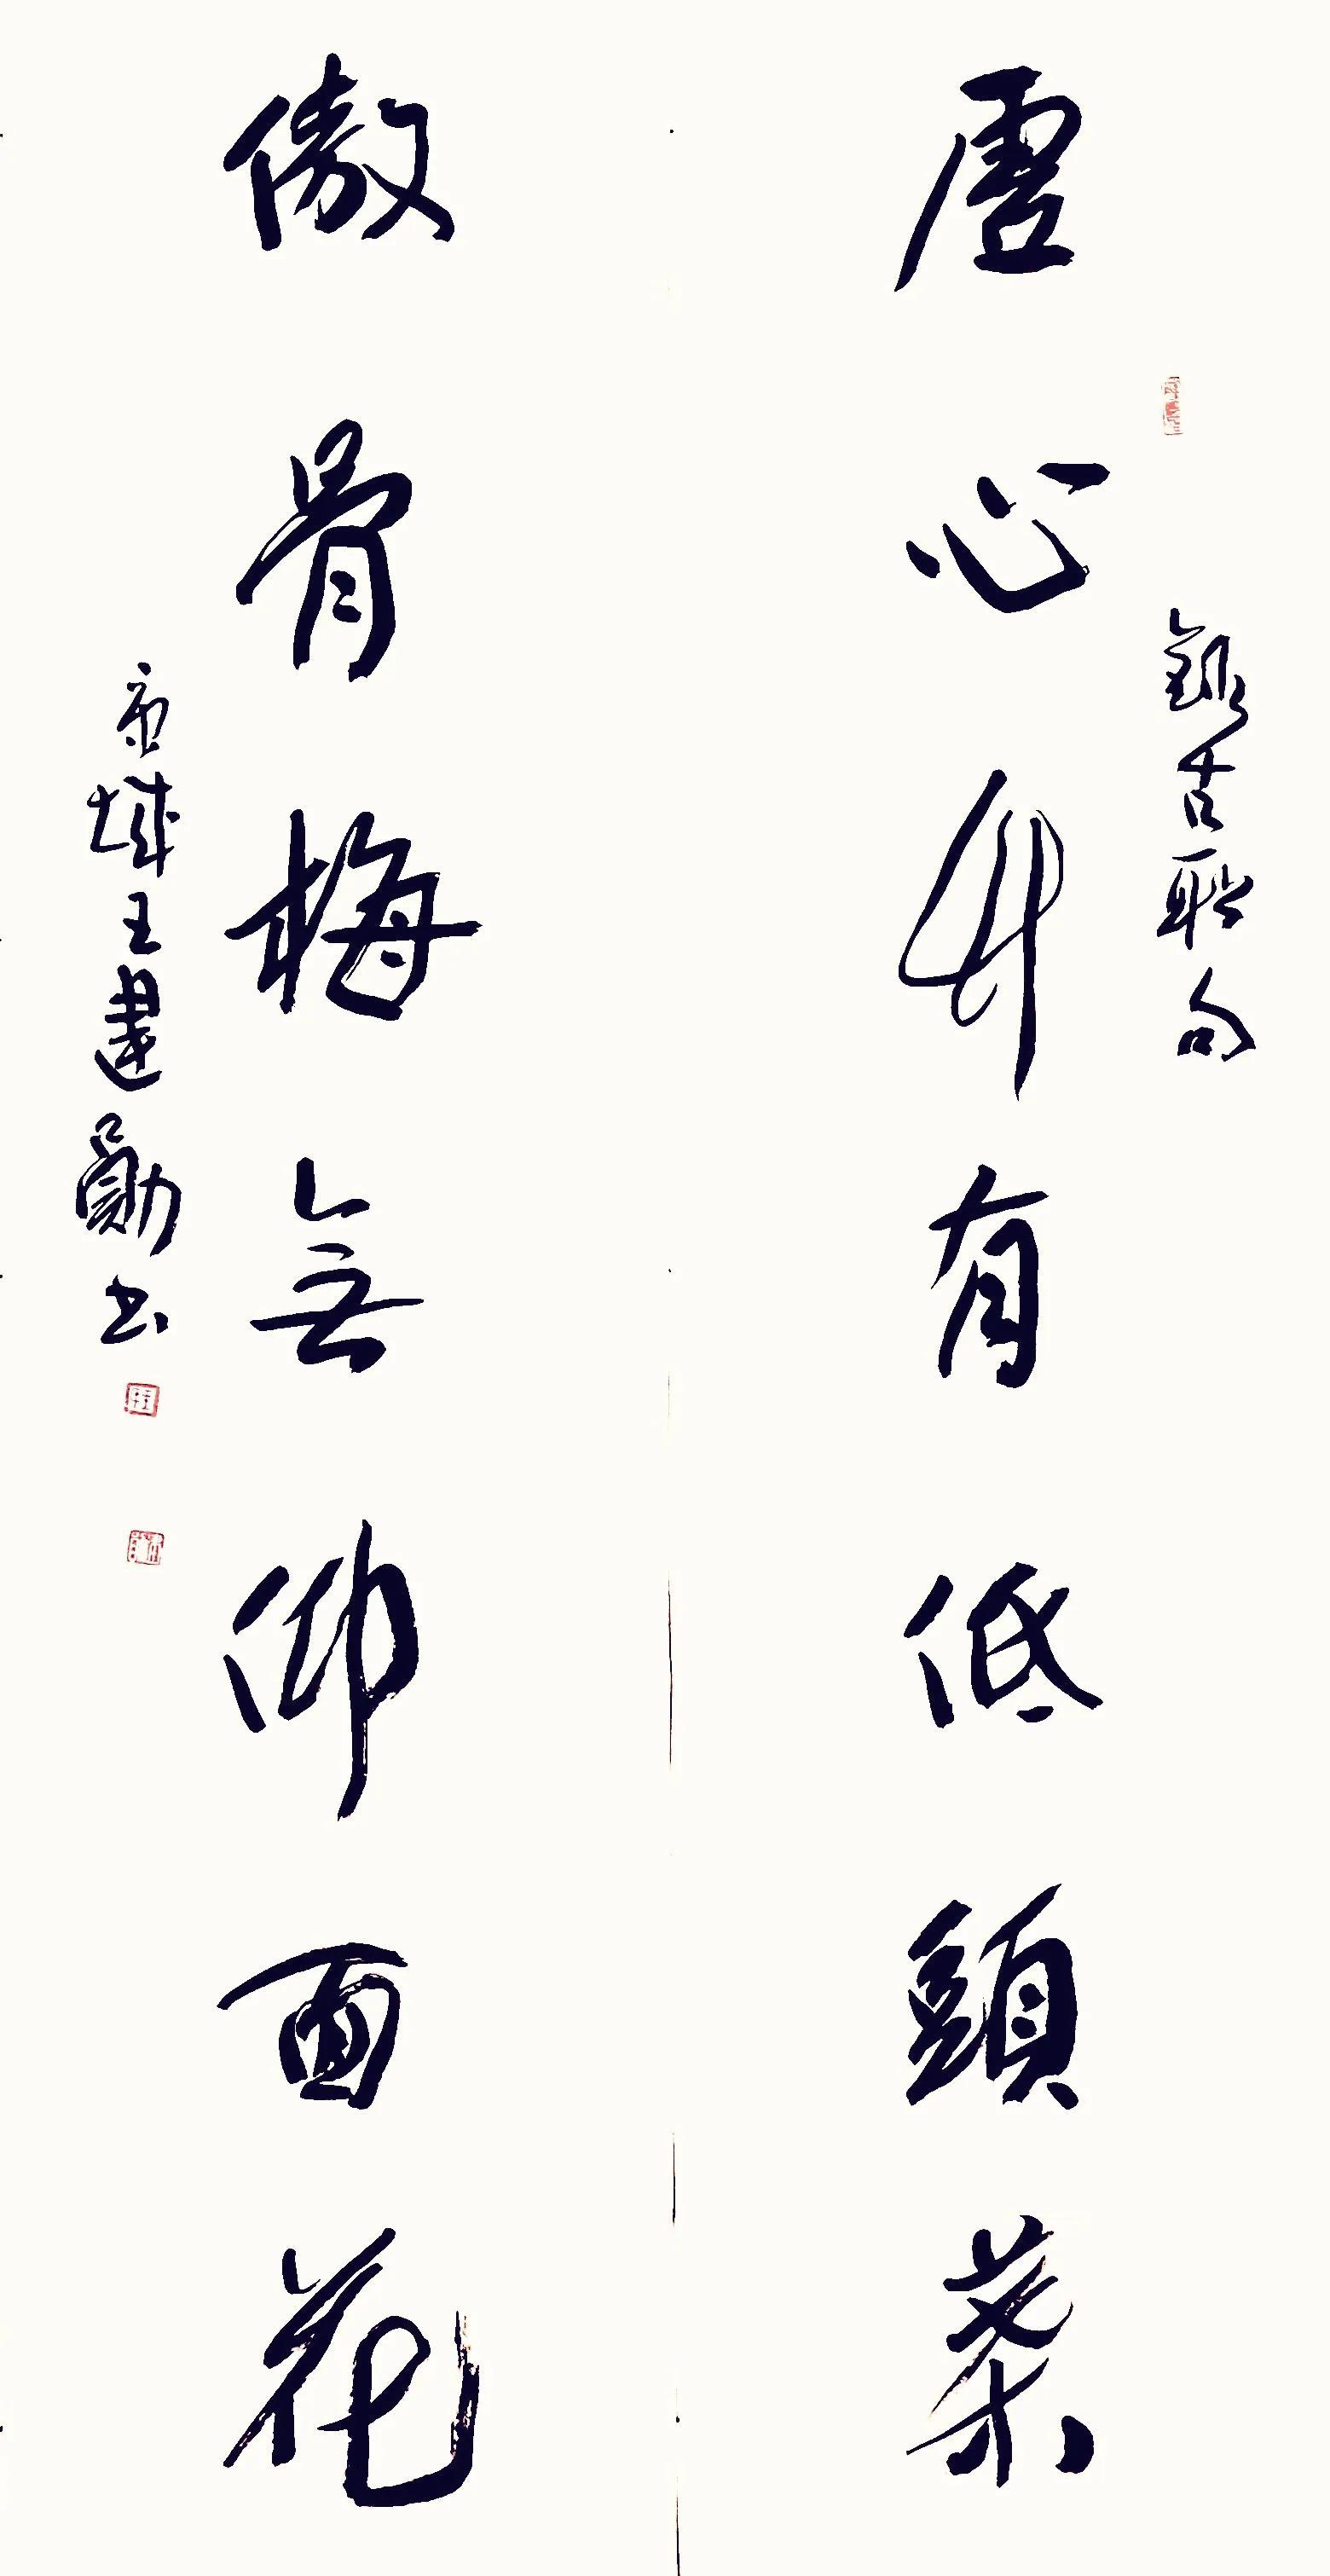 錄古聯句
虛心竹有低頭葉
傲骨梅無仰面花
京城王建勛书